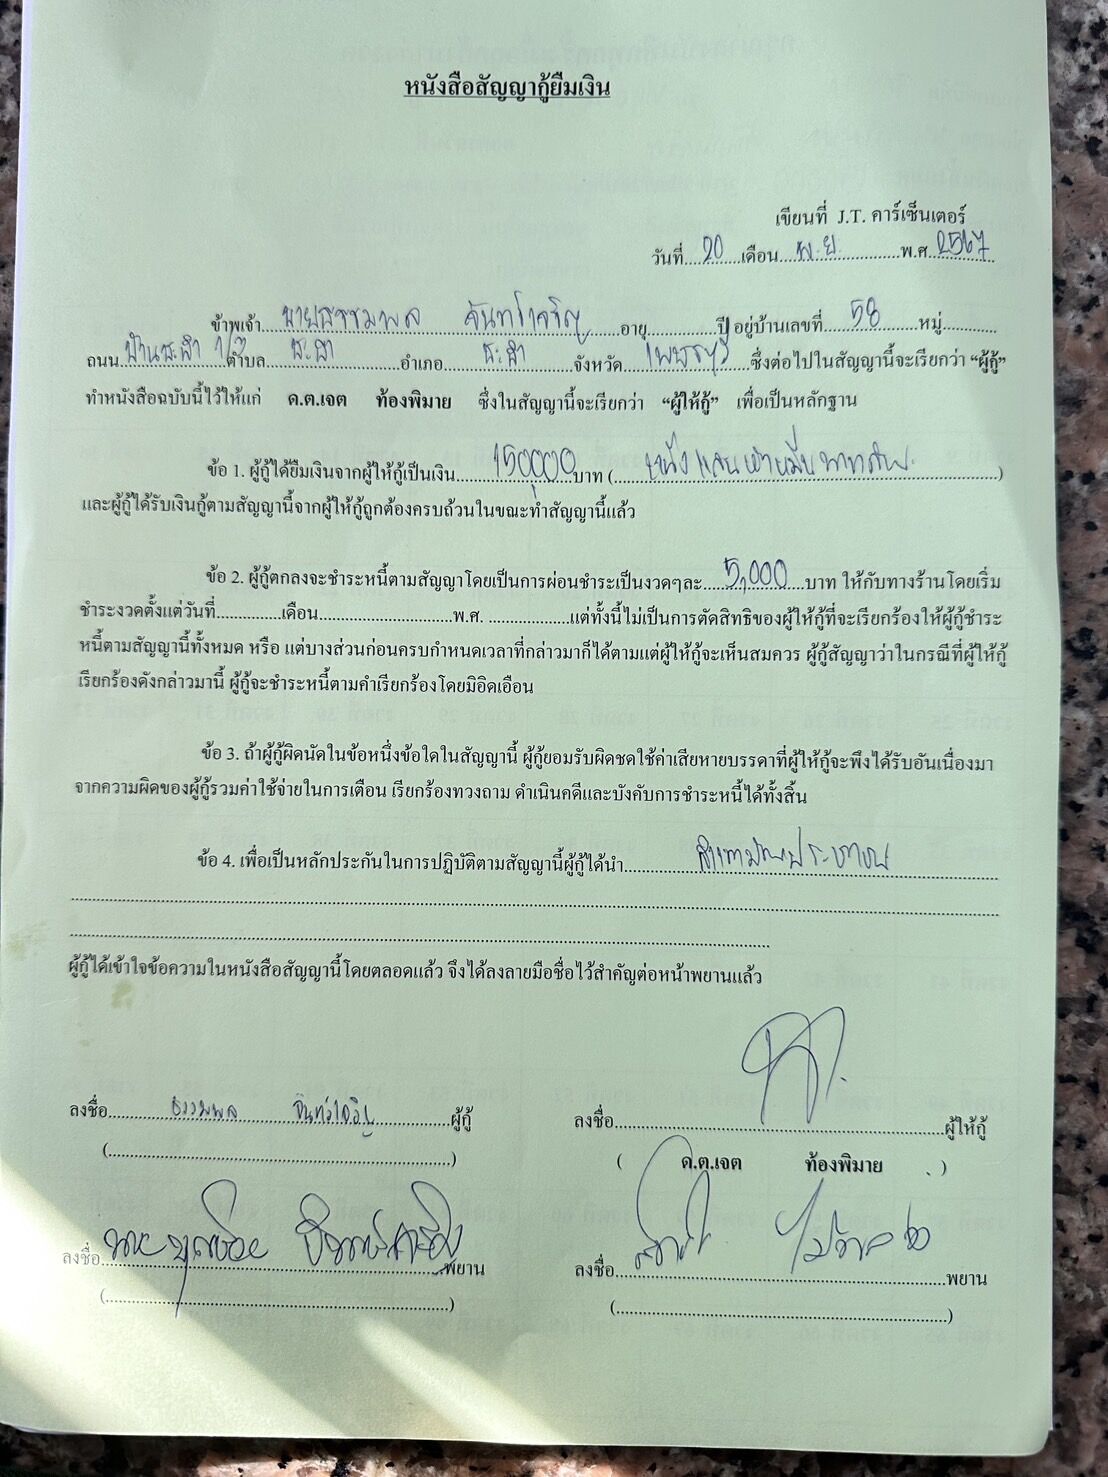 หนังสือสัญญากู้ยืมเงิน
เขียนที่ J.T. คาร์เซ็นเตอร์
วันที่ 20 เดือน พ.ย. พ.ศ. 2567
ข้าพเจ้า อายุ ปี อยู่บ้านเลขที่ 58 หมู่
ถนน ตำบล ชะอำ อำเภอ ชะอำ จังหวัด เพชรบุรี ซึ่งต่อไปในสัญญานี้จะเรียกว่า “ผู้กู้”
ทำหนังสือฉบับนี้ไว้ให้แก่ ด.ต.เจต ท้องพิมาย ซึ่งในสัญญานี้จะเรียกว่า “ผู้ให้กู้” เพื่อเป็นหลักฐาน
ข้อ 1. ผู้กู้ได้ยืมเงินจากผู้ให้กู้เป็นเงิน 150,000 บาท ( หนึ่งแสนห้าหมื่นบาทถ้วน )
และผู้กู้ได้รับเงินกู้ตามสัญญานี้จากผู้ให้กู้ถูกต้องครบถ้วนในขณะทำสัญญานี้แล้ว
ข้อ 2. ผู้กู้ตกลงจะชำระหนี้ตามสัญญาโดยเป็นการผ่อนชำระเป็นงวดๆละ 5,000 บาท ให้กับทางร้านโดยเริ่ม
ชำระงวดตั้งแต่วันที่ เดือน พ.ศ. แต่ทั้งนี้ไม่เป็นการตัดสิทธิของผู้ให้กู้ที่จะเรียกร้องให้ผู้กู้ชำระ
หนี้ตามสัญญานี้ทั้งหมด หรือ แต่บางส่วนก่อนครบกำหนดเวลาที่กล่าวมาก็ได้ตามแต่ผู้ให้กู้จะเห็นสมควร ผู้กู้สัญญาว่าในกรณีที่ผู้ให้กู้
เรียกร้องดังกล่าวมานี้ ผู้กู้จะชำระหนี้ตามคำเรียกร้องโดยมิอิดเอือน
ข้อ 3. ถ้าผู้กู้ผิดนัดในข้อหนึ่งข้อใดในสัญญานี้ ผู้กู้ยอมรับผิดชดใช้ค่าเสียหายบรรดาที่ผู้ให้กู้จะพึงได้รับอันเนื่องมา
จากความผิดของผู้กู้รวมค่าใช้จ่ายในการเตือน เรียกร้องทวงถาม ดำเนินคดีและบังคับการชำระหนี้ได้ทั้งสิ้น
ข้อ 4. เพื่อเป็นหลักประกันในการปฏิบัติตามสัญญานี้ผู้กู้ได้นำ สำเนาบัตรประชาชน
ผู้กู้ได้เข้าใจข้อความในหนังสือสัญญานี้โดยตลอดแล้ว จึงได้ลงลายมือชื่อไว้สำคัญต่อหน้าพยานแล้ว
ลงชื่อ ผู้กู้ ลงชื่อ ผู้ให้กู้
( ) ( ด.ต.เจต ท้องพิมาย )
ลงชื่อ พยาน ลงชื่อ พยาน
( ) ( )